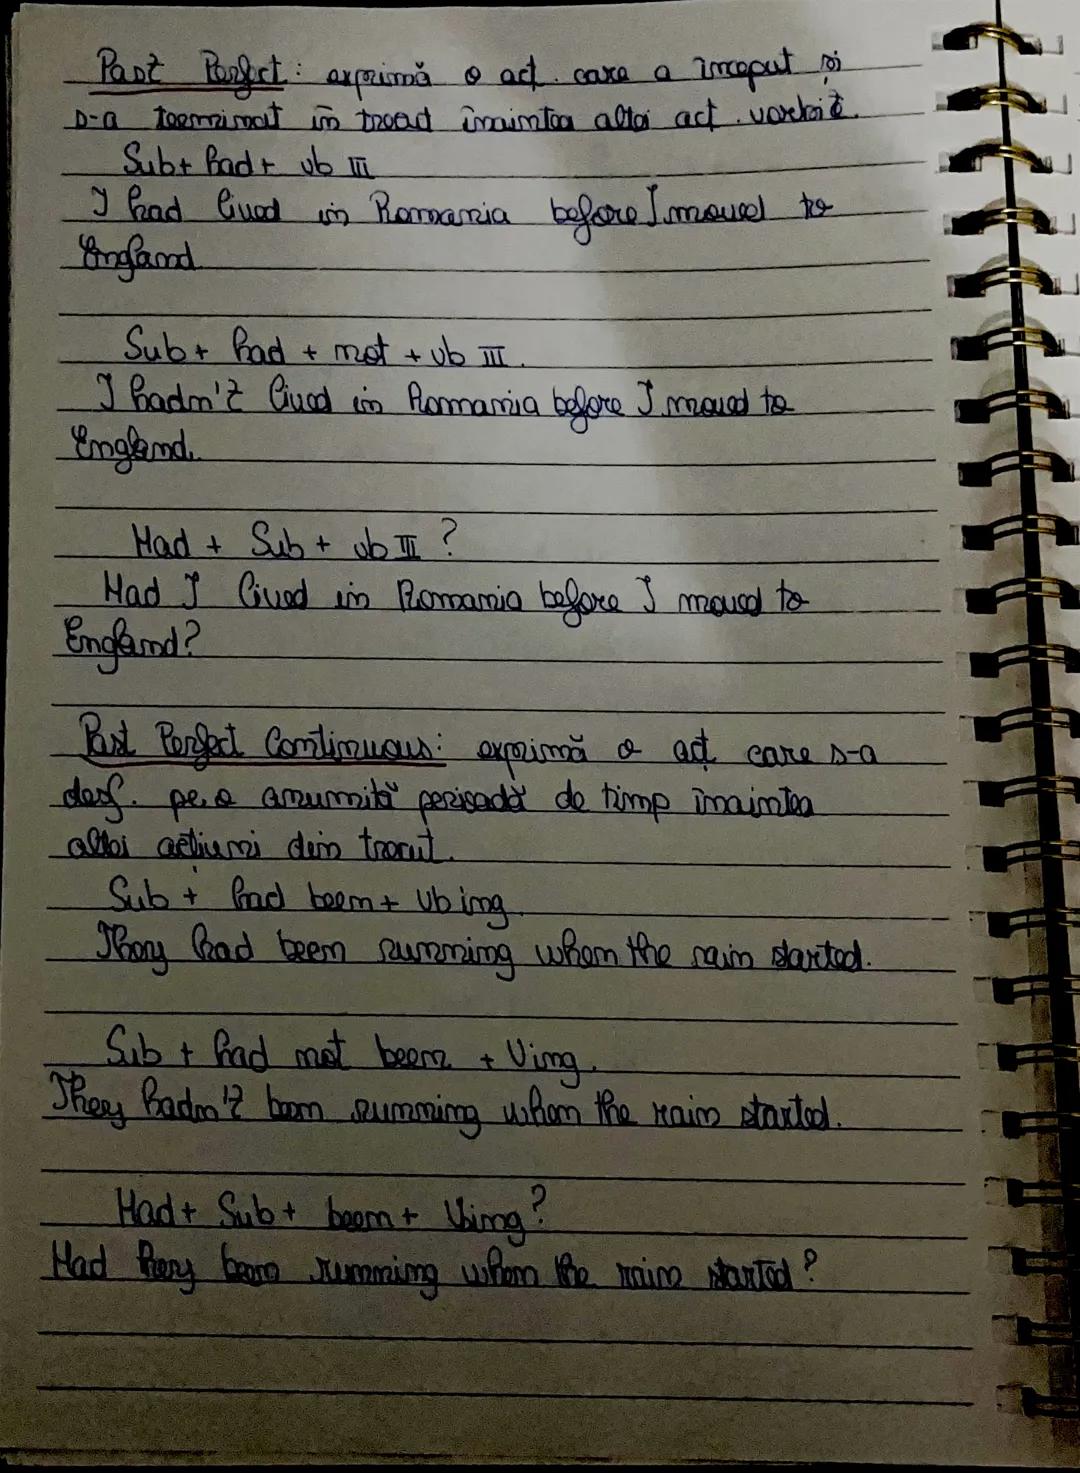 Past Perfect: exprimă o acț. care a început și
s-a terminat în trecut înaintea altei acț. vorbite.
Sub + had + vb III
I had lived in Romania before I moved to
England
Sub + had + not + vb III.
I hadn't lived in Romania before I moved to
England.
Had + Sub + vb III ?
Had I lived in Romania before I moved to
England?
Past Perfect Continuous: exprimă o acț care s-a
desf. pe o anumită perioadă de timp înaintea
altei acțiuni din trecut.
Sub + had been + Vb ing.
They had been running when the rain started.
Sub + had not been + Ving.
They hadn't been running when the rain started.
Had + Sub + been + Ving?
Had they been running when the rain started?